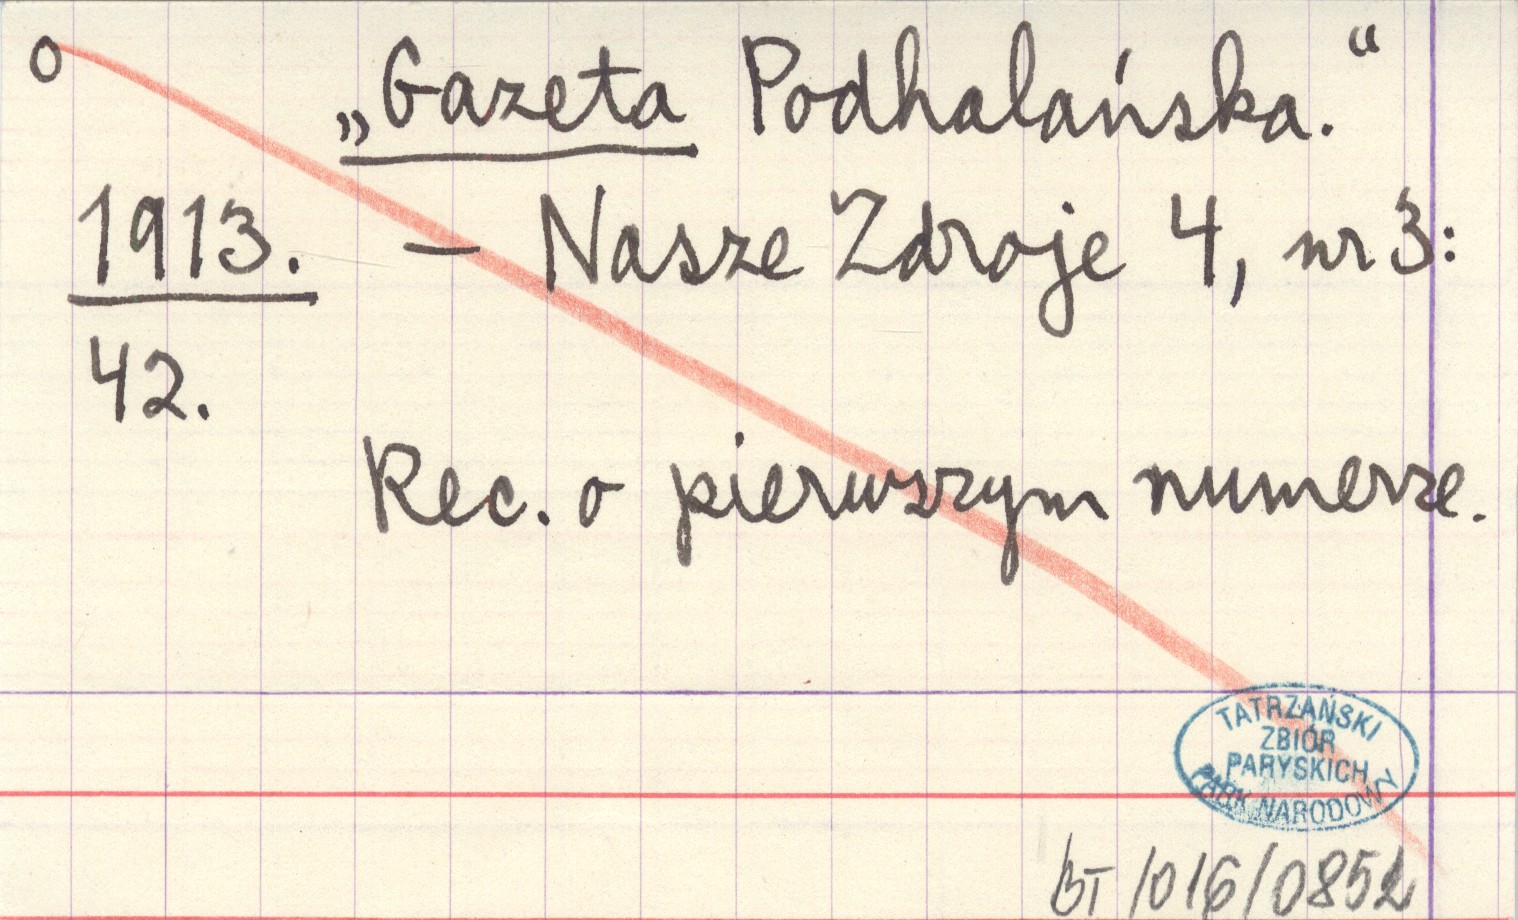 o
„Gazeta Podhalańska.“
1913. — Nasze Zdroje 4, nr 3:
42.
Rec. o pierwszym numerze.
TATRZAŃSKI
ZBIÓR
PARYSKICH
PARK NARODOWY
BT/016/0852